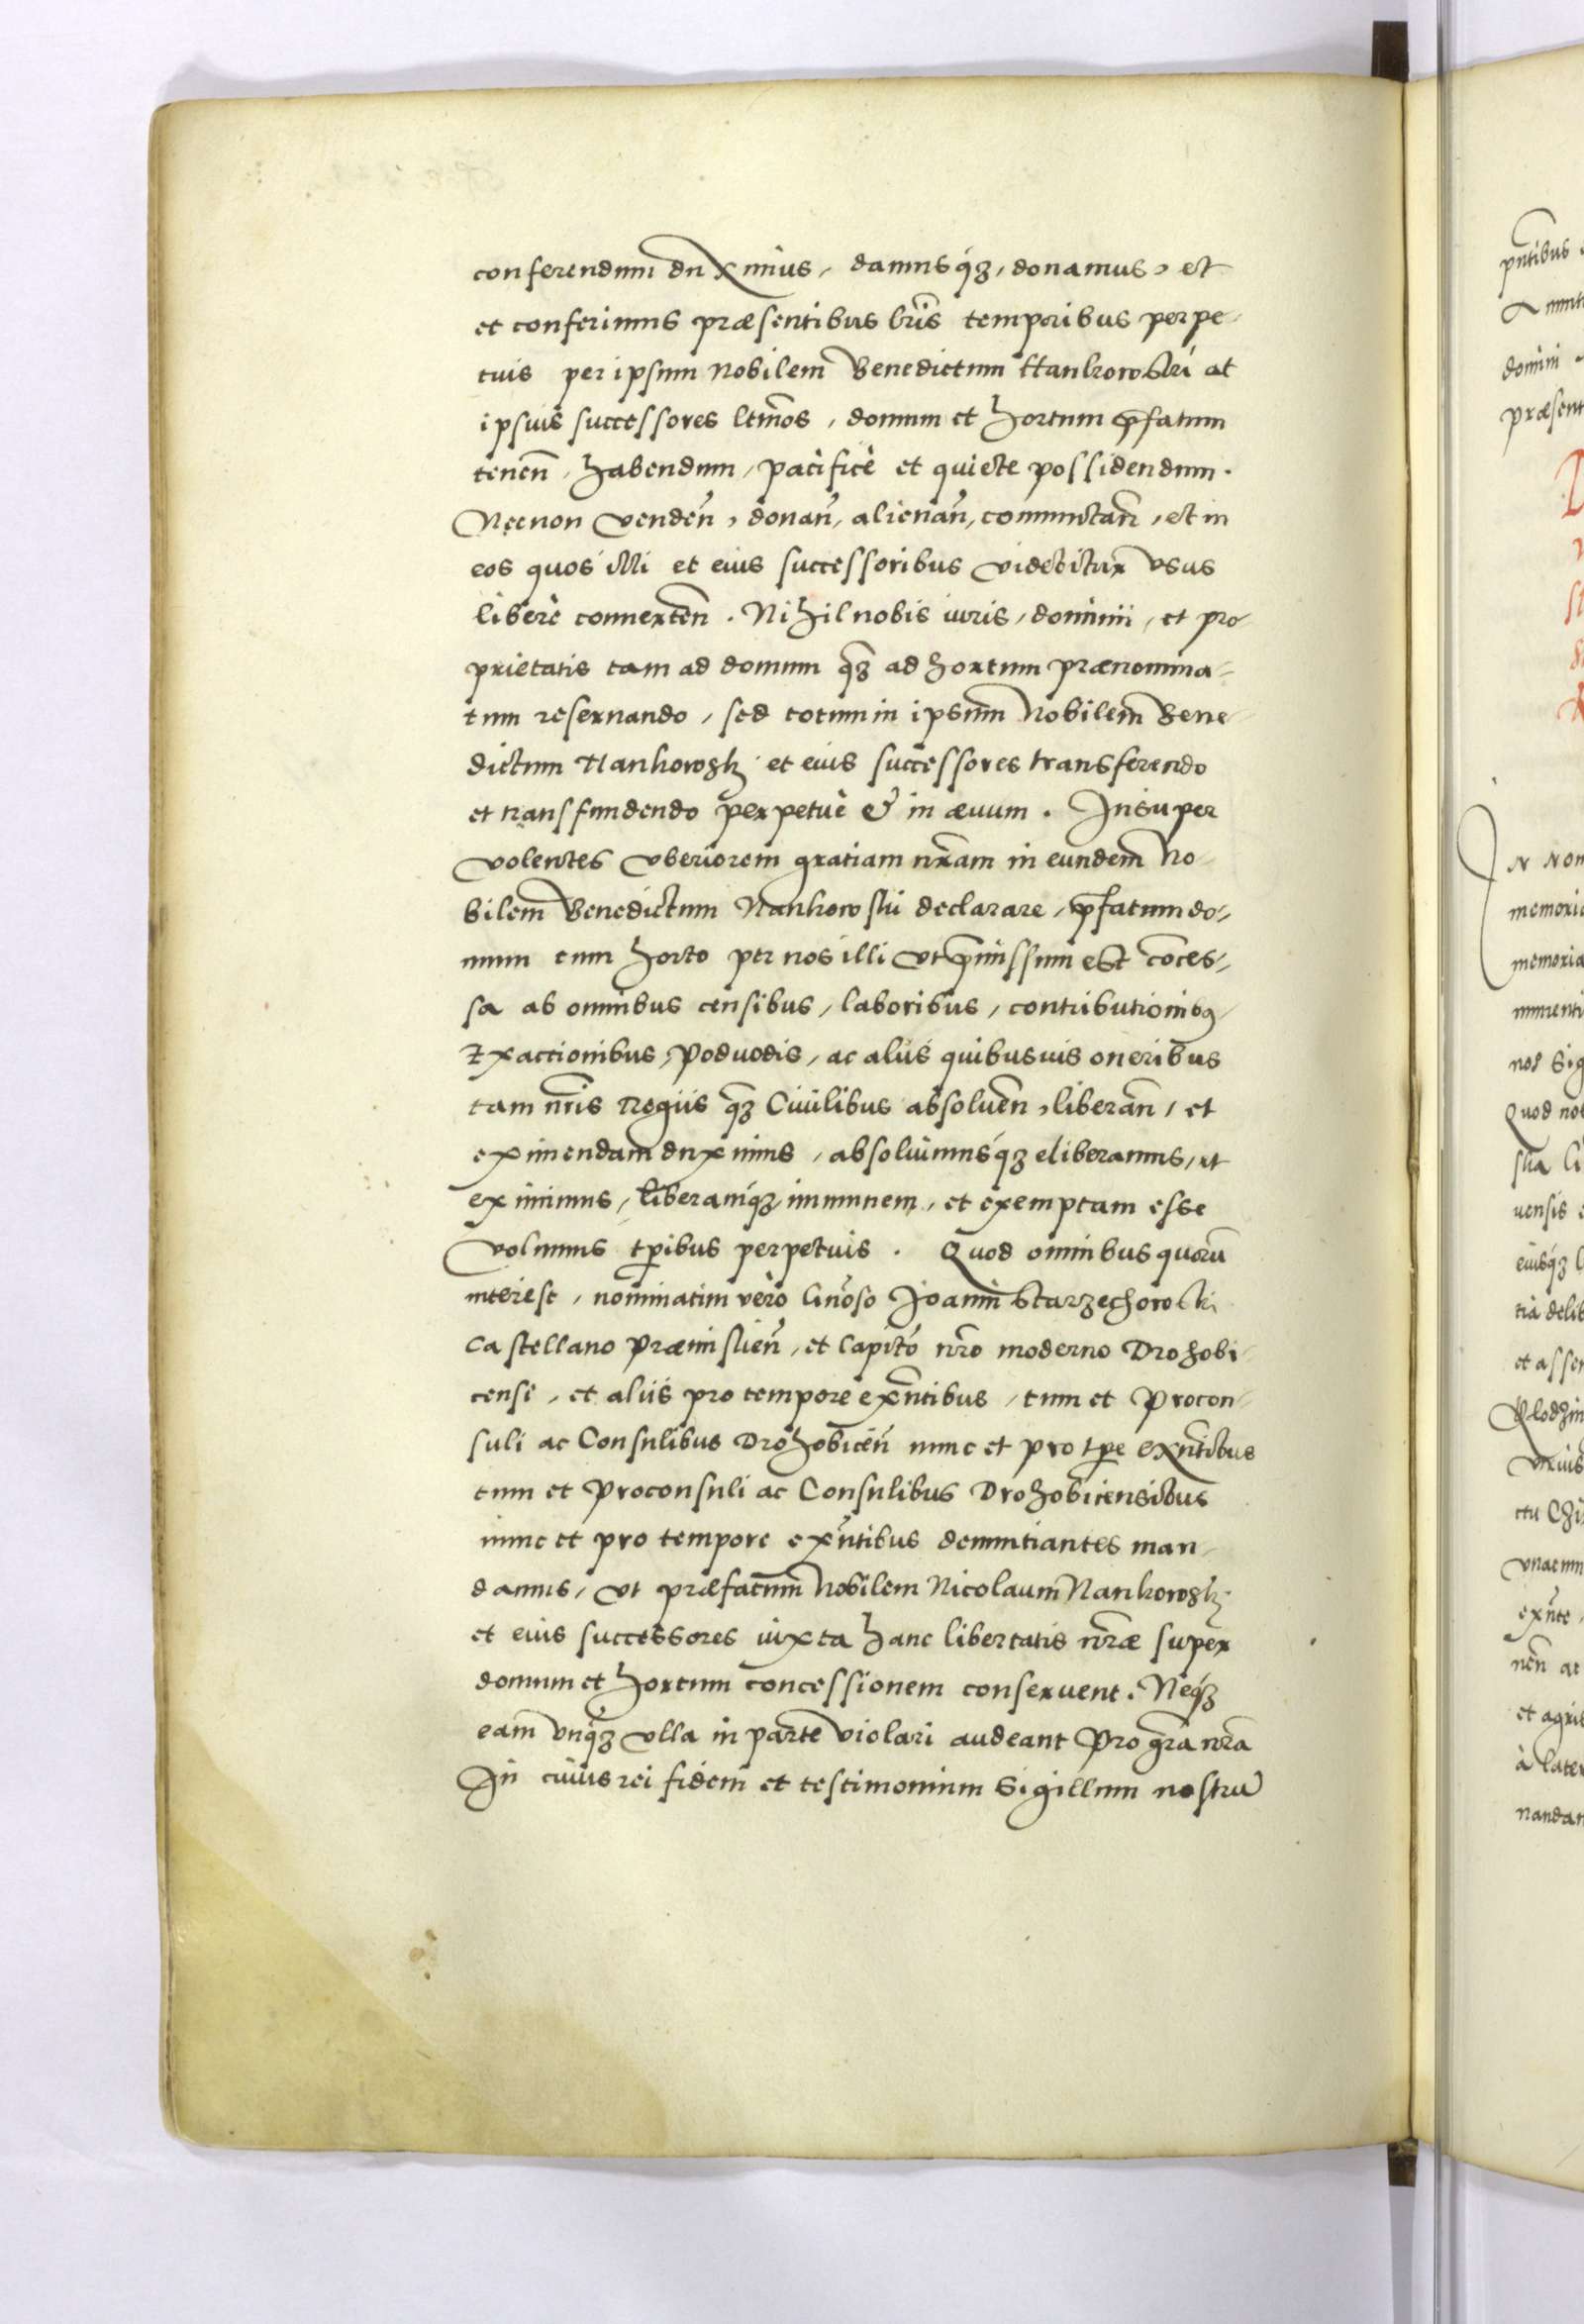 conferendum duximus, damusq́ʒ, donamus, et
et conferimus præsentibus lrĩs temporibus perpe-
tuis per ipsum Nobilem Benedictum Hankowski at
ipsius successores ltm̃os, domum et hortum p̃fatum
tenen̄, habendum, pacificè et quiete possidendum.
Necnon venden̄, donan̄, alienan̄, commutan̄, et in
eos quos illi et eius successoribus videbitur vsus
liberè conuerten̄. Nihil nobis iuris, dominii, et pro-
prietatis tam ad domum q̃ʒ ad hortum prænomina-
tum reseruando, sed totum in ipsum Nobilem Bene-
dictum Hankowsk et eius successores transferendo
et transfundendo perpetuè & in æuum. Insuper
volentes vberiorem gratiam nr̃am in eundem No-
bilem Benedictum Nankowski declarare, p̃fatum do-
mum cum horto per nos illi vt p̃missum est conces-
sa ab omnibus censibus, laboribus, contributionibq
Exactionibus, Poduodis, ac aliis quibusuis oneribus
tam nr̃is Regiis q̃ʒ Ciuilibus absoluen̄, liberan̄, et
eximendam duximus, absoluimusq́ʒ eliberamus, et
eximimus, liberamq́ʒ, immunem, et exemptam esse
volumus tp̃ibus perpetuis. Quod omnibus quorũ
interest, nominatim verò Gn̄oso Joanni Starzechowski
Castellano Præmislien̄, et Capit̃o nr̃o moderno Drohobi-
censi, et aliis pro tempore exñtibus, tum et Procon-
suli ac Consulibus Drohobicen̄ nunc et pro tp̃e exñtibus
tum et Proconsuli ac Consulibus Drohobicensibus
nunc et pro tempore exñtibus denuntiantes man-
damus, vt præfatum Nobilem Nicolaum Nankowsk
et eius successores iuxta hanc libertatis nr̃æ super
domum et hortum concessionem conseruent. Neq́ʒ
eam vnq́ʒ vlla in parte violari audeant Pro gr̃a nr̃a
In cuius rei fidem et testimonium Sigillum nostrũ